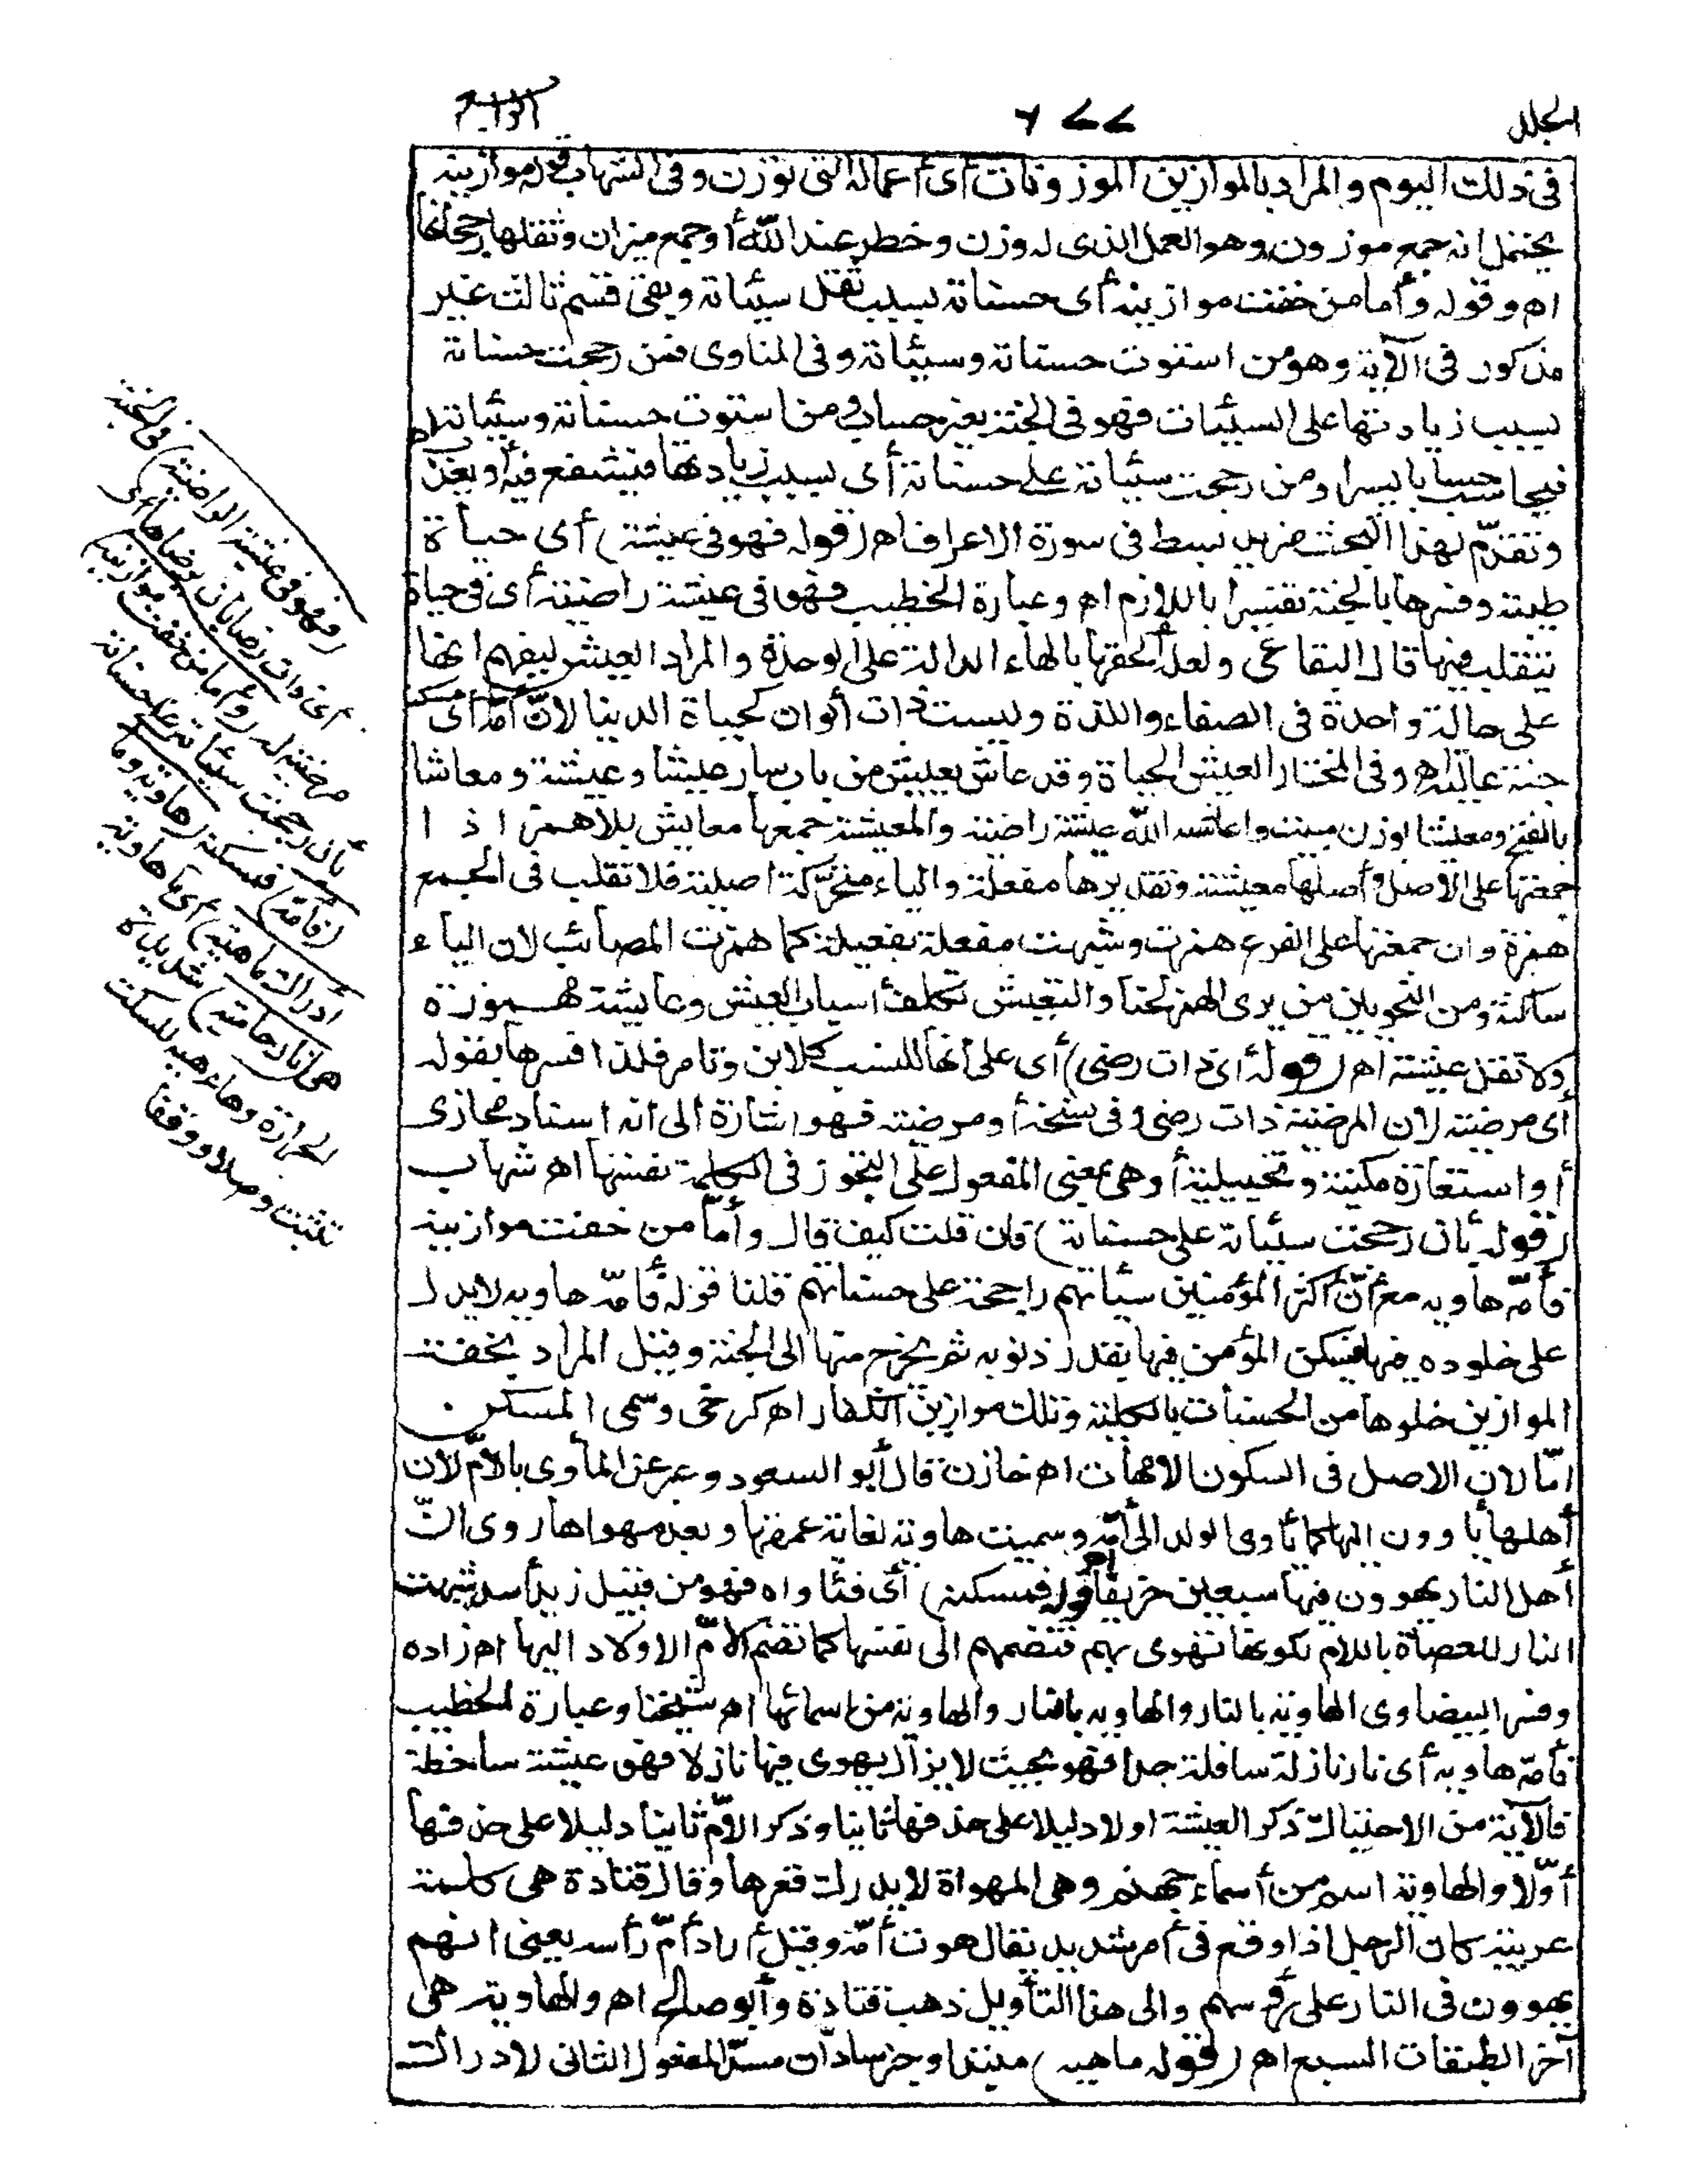 الجلد
٦٧٧
الرابع
فى ذلك اليوم والمراد بالموازين الموزونات أى أعماله التى توزن وفى الشهاب قوله موازينه
يحتمل انه جمع موزون وهو العمل الذى له وزن وخطر عند الله أو جمع ميزان وثقلها رجحانها
اه وقوله وأما من خفت موازينه أى حسناته بسبب ثقل سيئاته وبقى قسم ثالث غير
مذكور فى الآية وهو من استوت حسناته وسيئاته وفى المناوى فمن رجحت حسناته
بسبب زيادتها على السيئات فهو فى الجنة بغير حساب ومن استوت حسناته وسيئاته
فيحاسب حسابا يسيرا ومن رجحت سيئاته على حسناته أى بسبب زيادتها فيشفع فيه أو يعذب اه
وتقدّم لهذا البحث مزيد بسط فى سورة الاعراف اه (قوله فهو فى عيشة) أى حياة
طيبة وفسرها بالجنة تفسيرا باللازم اه وعبارة الخطيب فهو فى عيشة راضية أى فى حياة
يتقلب فيها قال البقاعى ولعل ألحقها بالهاء الدالة على الوحدة والمراد العيش ليفهم انها
على حالة واحدة فى الصفاء واللذة وليست ذات ألوان كحياة الدنيا لانّ أمّه أى مسكنه
جنة عالية اه وفى المختار العيش الحياة وقد عاش يعيش من باب سار عيشا وعيشة ومعاشا
بالفتح ومعيشا بوزن مبيت وأعاشه الله عيشة راضية والمعيشة جمعها معايش بلا همز اذا
جمعتها على الاصل وأصلها معيشة وتقديرها مفعلة والياء متحرّكة أصلية فلا تقلب فى الجمع
همزة وان جمعتها على الفرع همزت وشبهت مفعلة بفعيلة كما همزت المصائب لان الياء
ساكنة ومن النحويين من يرى الهمز لحنا والتعيش تكلف أسباب العيش وعايشة مهموزة
ولا تقل عيشة اه (قوله أى ذات رضى) أى على أنها للنسب كلابن وتامر فلذا فسرها بقوله
أى مرضية لان المرضية ذات رضى وفى نسخة أو مرضية فهو اشارة الى انه اسناد مجازى
أو استعارة مكنية وتخييلية أو هى بمعنى المفعول على التجوز فى الكلمة نفسها اه شهاب
(قوله بأن رجحت سيئاته على حسناته) فان قلت كيف قال وأمّا من خفت موازينه
فأمّه هاويه مع أنّ أكثر المؤمنين سيآتهم راجحة على حسناتهم قلنا قوله فأمّه هاويه لا يدل
على خلوده فيها فيسكن المؤمن فيها بقدر ذنوبه ثم يخرج منها الى الجنة وقيل المراد بخفت
الموازين خلوها من الحسنات بالكلية وتلك موازين الكفار اه كرخى وسمى المسكن
امّا لان الاصل فى السكون الامهات اه خازن قال أبو السعود وعبر عن المأوى بالأمّ لان
أهلها يأوون اليها كما يأوى الولد الى أمّه وسميت هاوية لغاية عمقها وبعد مهواها روى انّ
أهل النار يهوون فيها سبعين خريفا اه (قوله فمسكنه) أى فمأواه فهو من قبيل زيد أسد شبهت
النار للعصاة بالام لكونها تهوى بهم فتضمهم الى نفسها كما تضم الأمّ الاولاد اليها اه زاده
وفسر البيضاوى الهاوية بالنار والهاويه بالنار والهاوية من اسمائها اه شيخنا وعبارة الخطيب
فأمّه هاويه أى نار نازلة سافلة جدا فهو بحيث لا يزال يهوى فيها نازلا فهو فى عيشة ساخطة
فالآية من الاحتباك ذكر العيشة اولا دليلا على حذفها ثانيا وذكر الأمّ ثانيا دليلا على حذفها
أوّلا والهاوية اسم من أسماء جهنم وهى المهواة لا يدرك قعرها وقال قتادة هى كلمة
عربية كان الرجل اذا وقع فى أمر شديد يقال هوت أمّه وقيل أراد أمّ رأسه يعنى انهم
يهوون فى النار على رؤسهم والى هذا التأويل ذهب قتادة وأبو صالح اه والهاوية هى
آخر الطبقات السبع اه (قوله ماهيه) مبتدا وخبر سادّان مسدّ المفعول الثانى لادراك
(فهو فى عيشة راضية) فى الجنة
أى ذات رضا بأن يرضاها أى
مرضية له (وأما من خفت موازينه)
بأن رجحت سيئاته على حسناته
(فأمّه) فمسكنه (هاوية وما
أدراك ماهيه) أى ما هاوية
هى (نار حامية) شديدة
الحرارة وهاء هيه للسكت
تثبت وصلا ووقفا